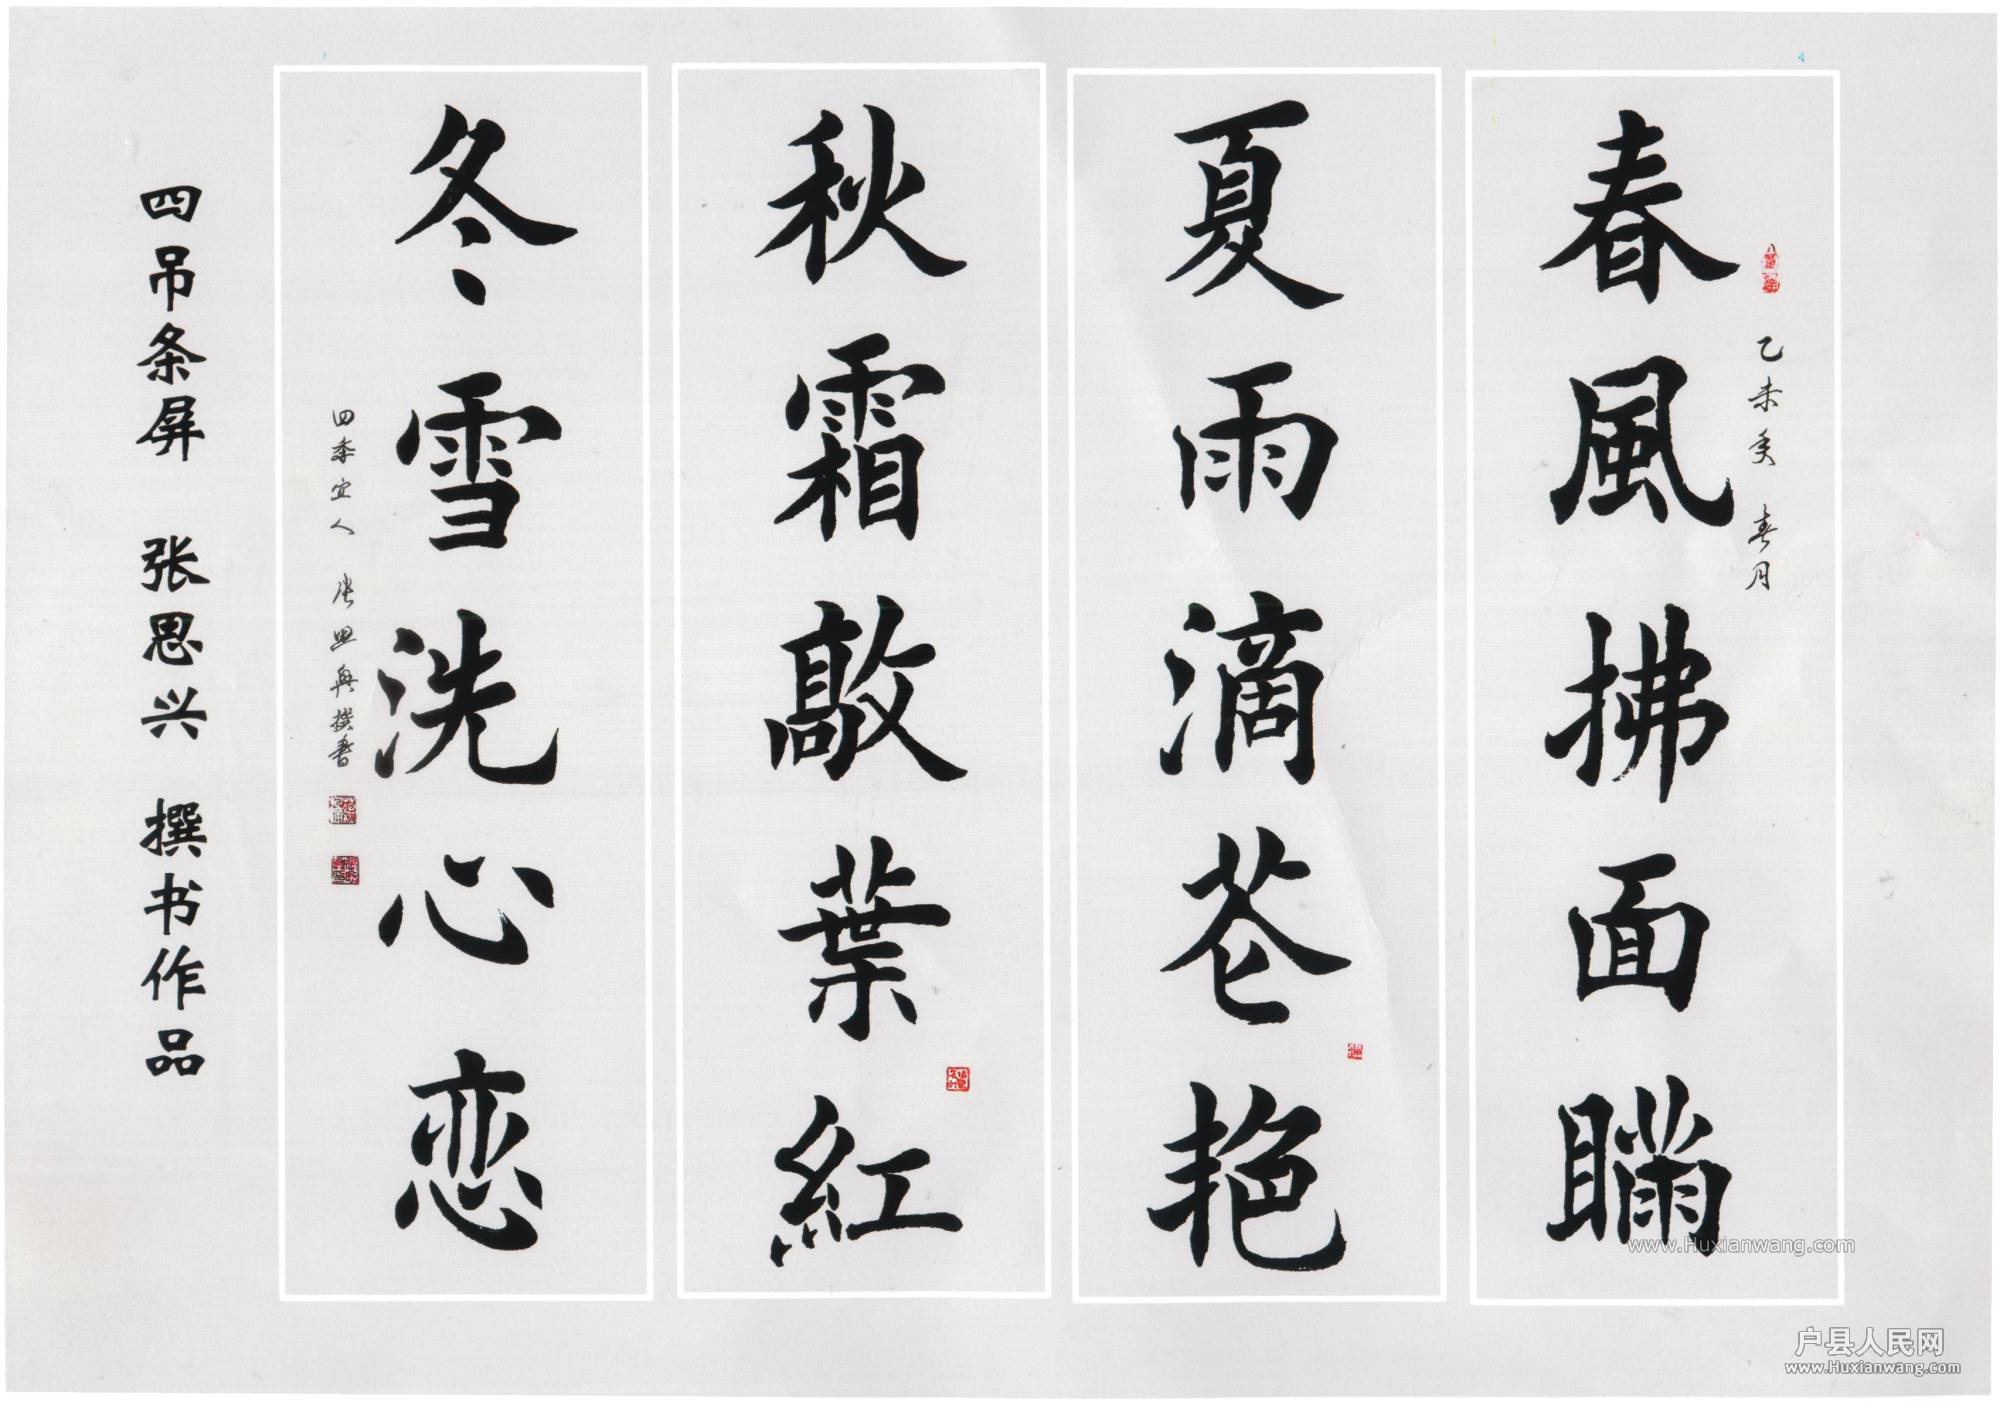 春風拂面
乙未年 春月
夏雨滴苍艳
秋霜敲葉紅
冬雪洗心恋
四季宜人 張思興撰書
四吊条屏 张思兴 撰书作品
www.Huxianwang.com
户县人民网
www.Huxianwang.com